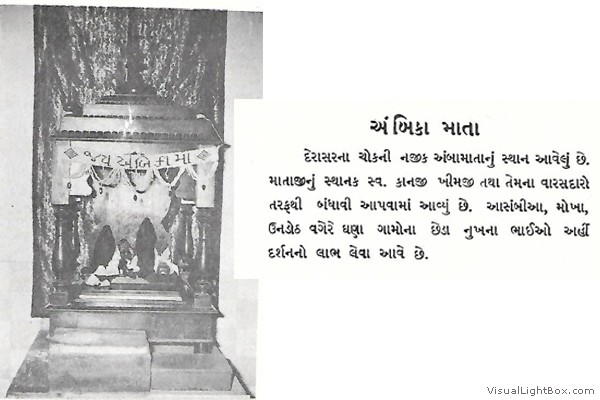 જય અંબિકા માં
અંબિકા માતા
દેરાસરના ચોકની નજીક અંબામાતાનું સ્થાન આવેલું છે.
માતાજીનું સ્થાનક સ્વ. કાનજી ખીમજી તથા તેમના વારસદારો
તરફથી બંધાવી આપવામાં આવ્યું છે. આસંબીઆ, મોખા,
ઉનડોઠ વગેરે ઘણા ગામોના છેડા નુખના ભાઈઓ અહીં
દર્શનનો લાભ લેવા આવે છે.
VisualLightBox.com